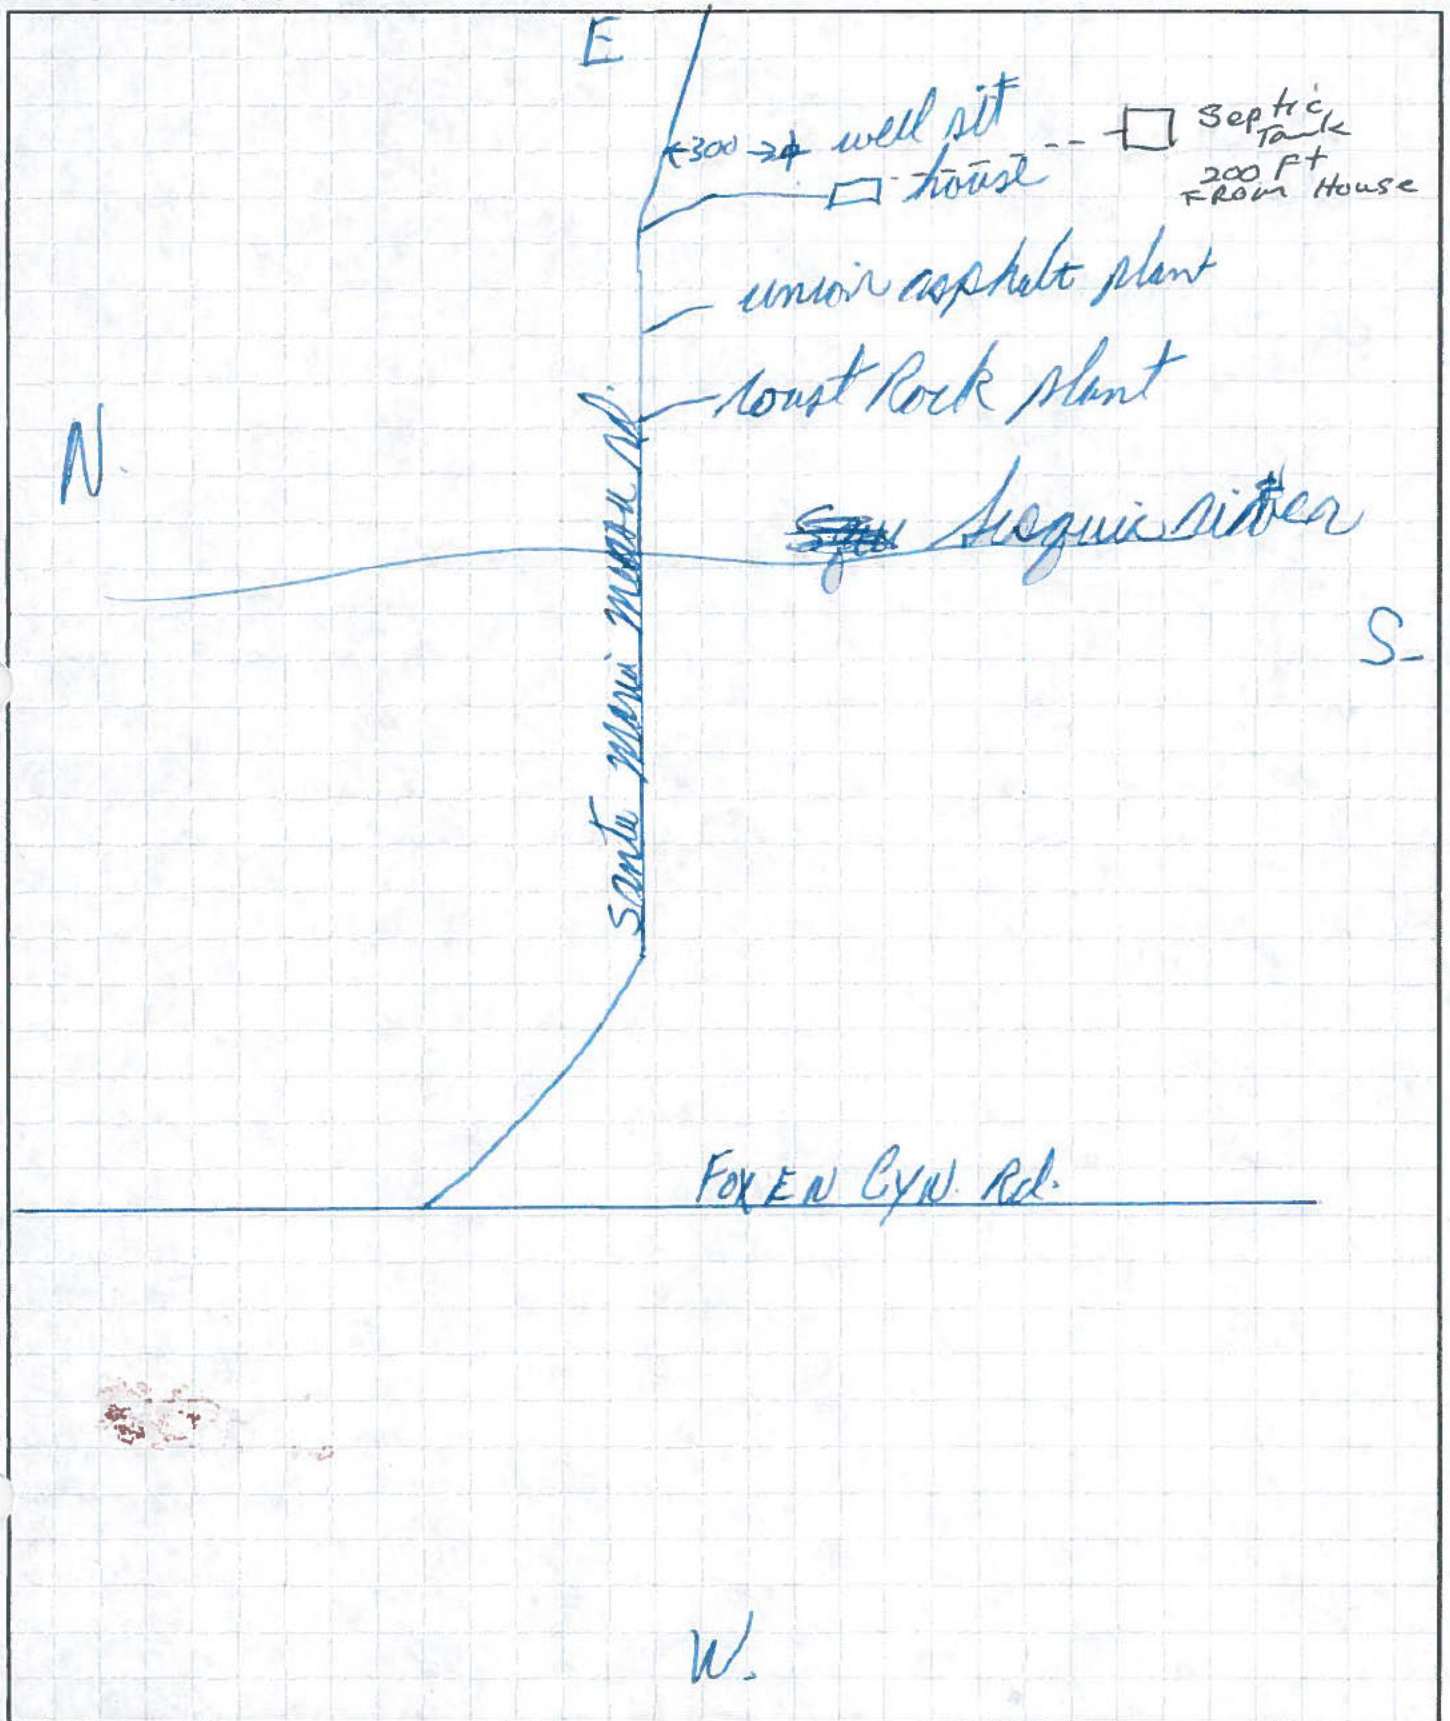 E
300 well sit
house
Septic
Tank
200 Ft
FROM House
union asphalt plant
coast Rock plant
N.
Sisquic river
S-
santa maria mesa rd.
FOXEN CYN. Rd.
W.